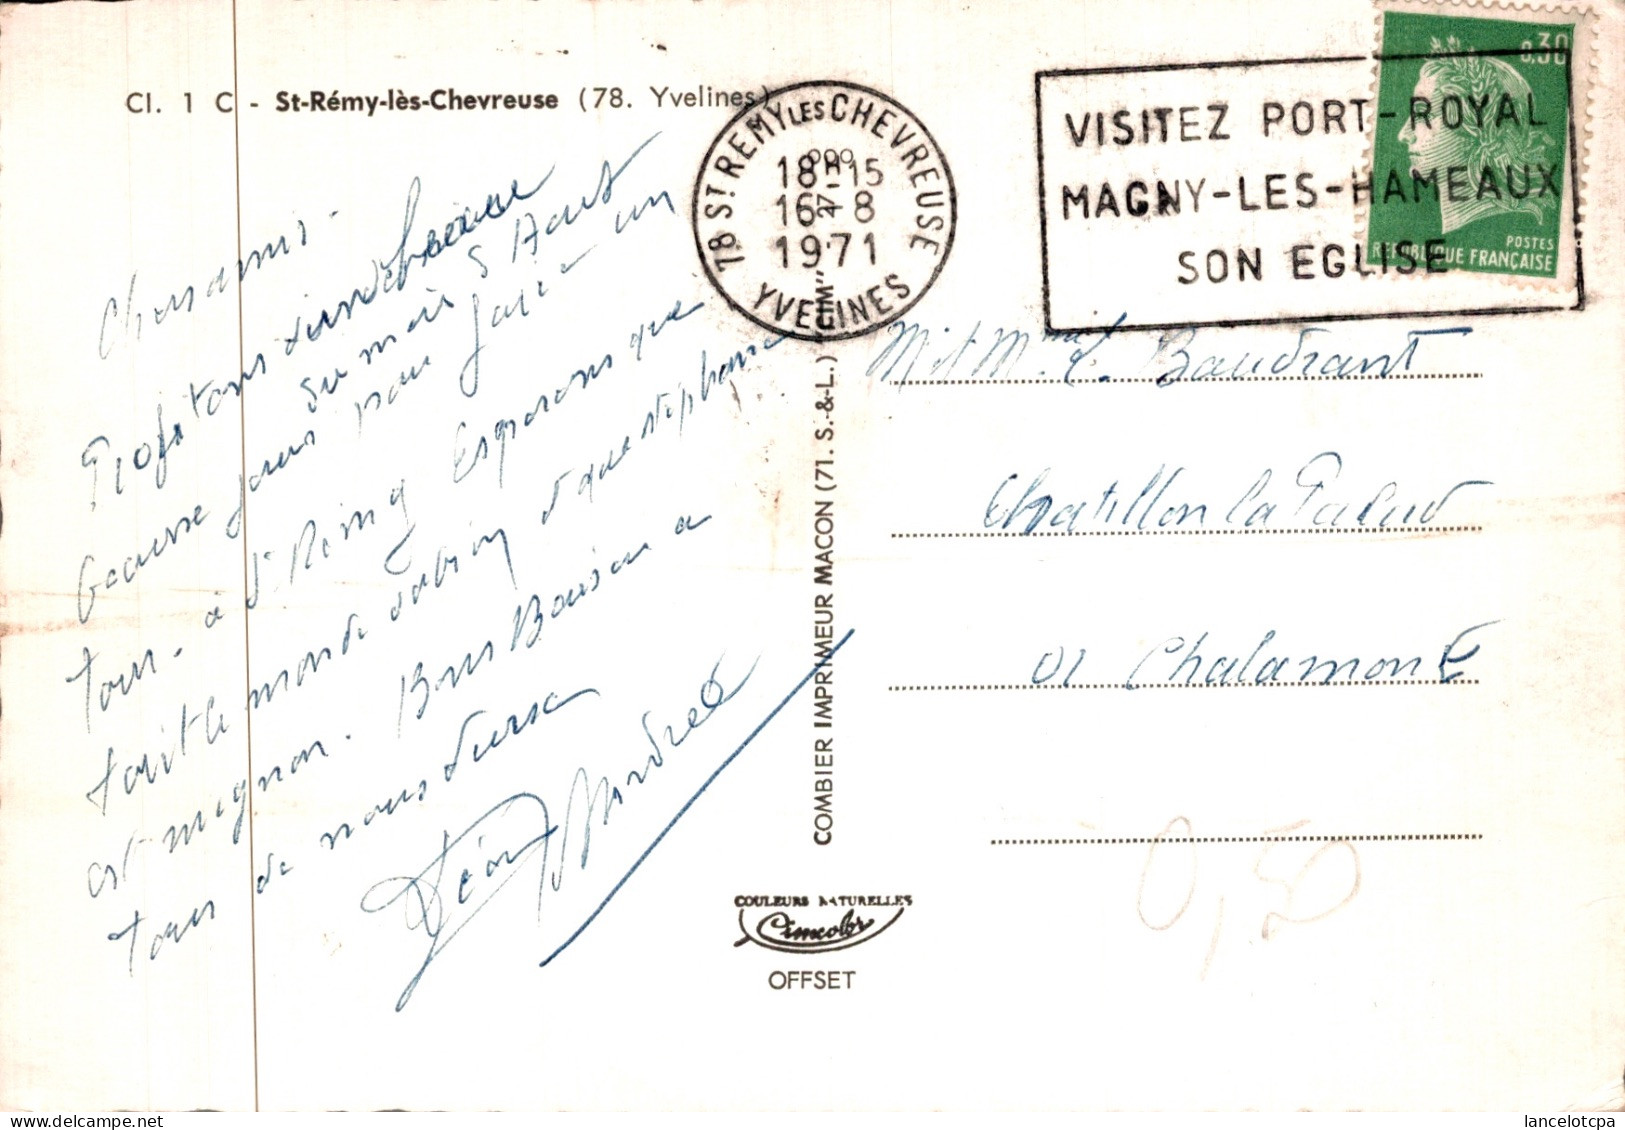 Cl. 1 C - St-Rémy-lès-Chevreuse (78. Yvelines)
78 ST REMY LES CHEVREUSE
18H15
16-8
1971
YVELINES
VISITEZ PORT-ROYAL
MAGNY-LES-HAMEAUX
SON EGLISE
0,30
POSTES
REPUBLIQUE FRANÇAISE
Chers amis -
Profitons d'un de
beaux jours du mois d'Aout
pour un
tour - à St Rémy Esperons que
tout le monde va bien et que Stephane
est mignon. Bons Baisers a
tous de nous deux
Andrée
M. et Mme E. Baudrant
Chatillon la Palud
01 Chalamont
COMBIER IMPRIMEUR MACON (71. S.-&-L.) "CIM"
COULEURS NATURELLES
Cimcolor
OFFSET
0,50
lancelotcpa